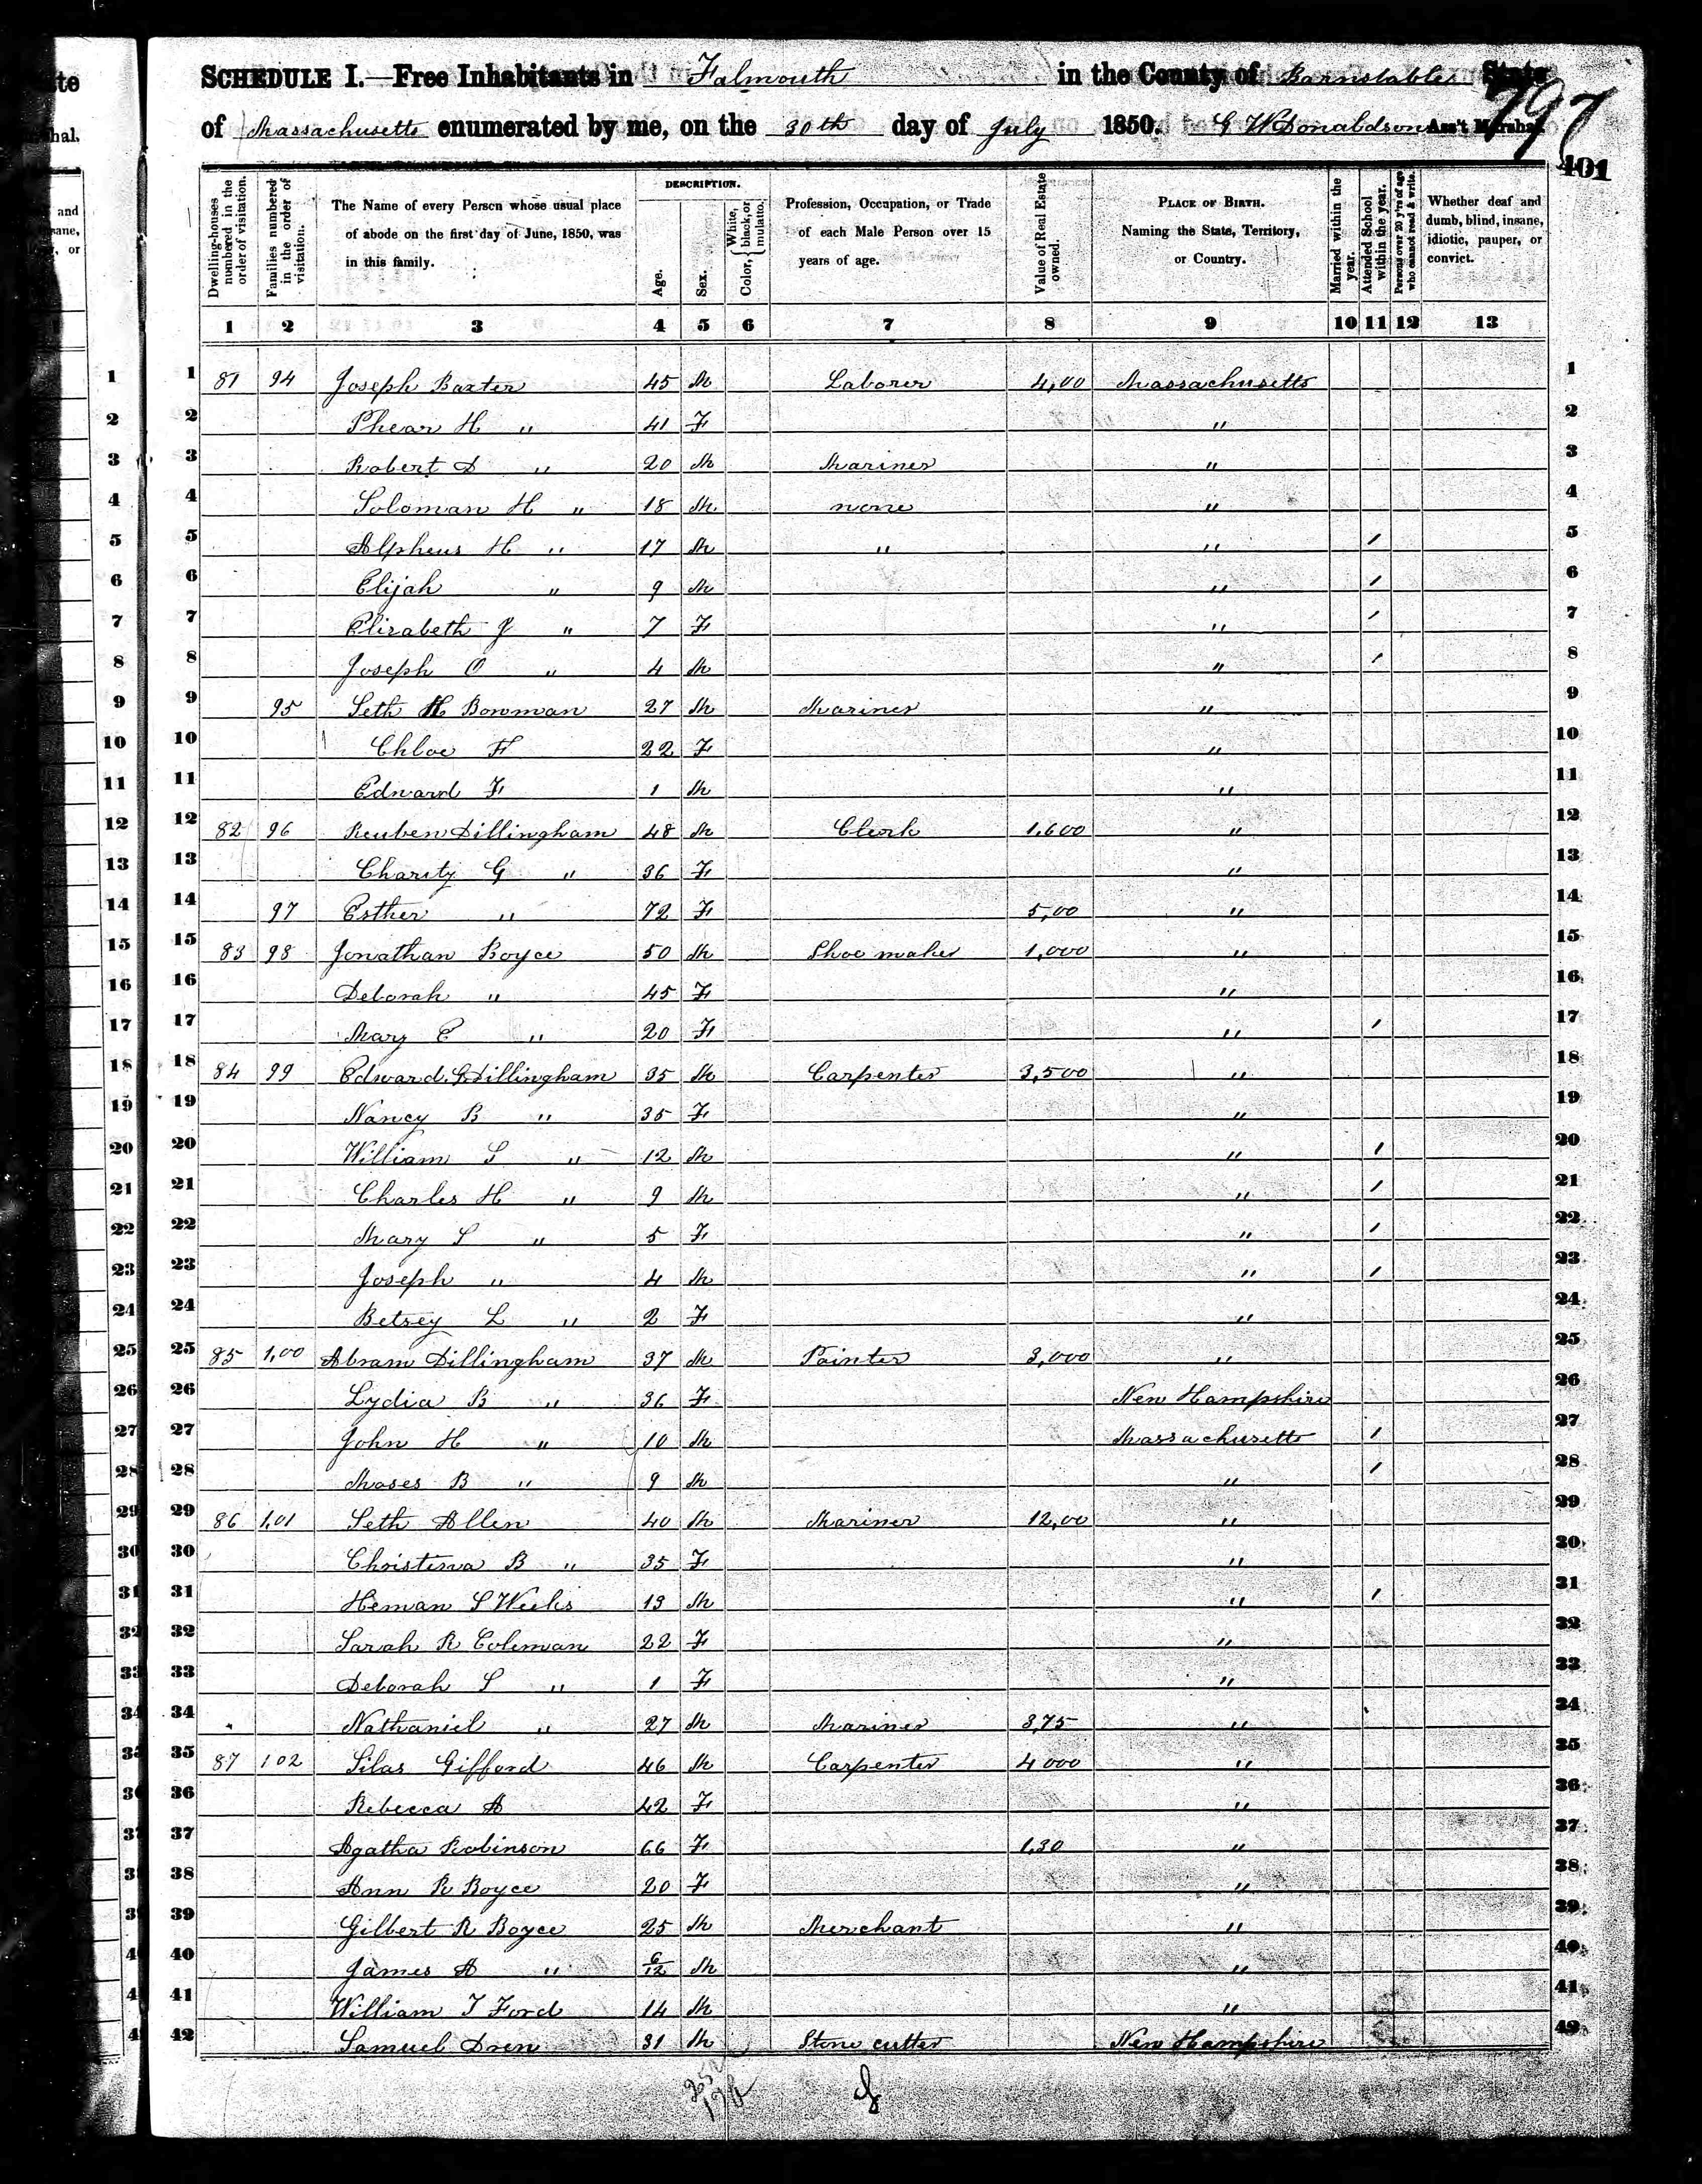 SCHEDULE I.—Free Inhabitants in Falmouth in the County of Barnstable State
of Massachusetts enumerated by me, on the 30th day of July 1850. G W Donaldson Ass't Marshal.
797
401
Dwelling-houses numbered in the order of visitation.
Families numbered in the order of visitation.
The Name of every Person whose usual place of abode on the first day of June, 1850, was in this family.
DESCRIPTION.
Age.
Sex.
Color, { White, black, or mulatto.
Profession, Occupation, or Trade of each Male Person over 15 years of age.
Value of Real Estate owned.
PLACE OF BIRTH. Naming the State, Territory, or Country.
Married within the year.
Attended School within the year.
Persons over 20 y'rs of age who cannot read & write.
Whether deaf and dumb, blind, insane, idiotic, pauper, or convict.
1 2 3 4 5 6 7 8 9 10 11 12 13
1 81 94 Joseph Baxter 45 M Laborer 4,00 Massachusetts 1
2 Phear H " 41 F " 2
3 Robert D " 20 M Mariner " 3
4 Soloman H " 18 M none " 4
5 Alpheus H " 17 M " " / 5
6 Elijah " 9 M " / 6
7 Elizabeth J " 7 F " / 7
8 Joseph O " 4 M " / 8
9 95 Seth H Bowman 27 M Mariner " 9
10 Chloe F 22 F " 10
11 Edward F 1 M " 11
12 82 96 Reuben Dillingham 48 M Clerk 1,600 " 12
13 Charity G " 36 F " 13
14 97 Esther " 72 F 5,00 " 14
15 83 98 Jonathan Boyce 50 M Shoe maker 1,000 " 15
16 Deborah " 45 F " 16
17 Mary E " 20 F " / 17
18 84 99 Edward G Dillingham 35 M Carpenter 3,500 " 18
19 Nancy B " 35 F " 19
20 William S " 12 M " / 20
21 Charles H " 9 M " / 21
22 Mary S " 5 F " / 22
23 Joseph " 4 M " / 23
24 Betsey L " 2 F " 24
25 85 1,00 Abram Dillingham 37 M Painter 3,000 " 25
26 Lydia B " 36 F New Hampshire 26
27 John H " 10 M Massachusetts / 27
28 Moses B " 9 M " / 28
29 86 1,01 Seth Allen 40 M Mariner 12,00 " 29
30 Christina B " 35 F " 30
31 Heman S Weeks 13 M " / 31
32 Sarah R Coleman 22 F " 32
33 Deborah S " 1 F " 33
34 Nathaniel " 27 M Mariner 3,75 " 34
35 87 102 Silas Gifford 46 M Carpenter 4000 " 35
36 Rebecca A 42 F " 36
37 Agatha Robinson 66 F 1,30 " 37
38 Ann R Boyce 20 F " 38
39 Gilbert R Boyce 25 M Merchant " 39
40 James A " 6/12 M " 40
41 William T Ford 14 M " 41
42 Samuel Dren 31 M Stone cutter New Hampshire 42